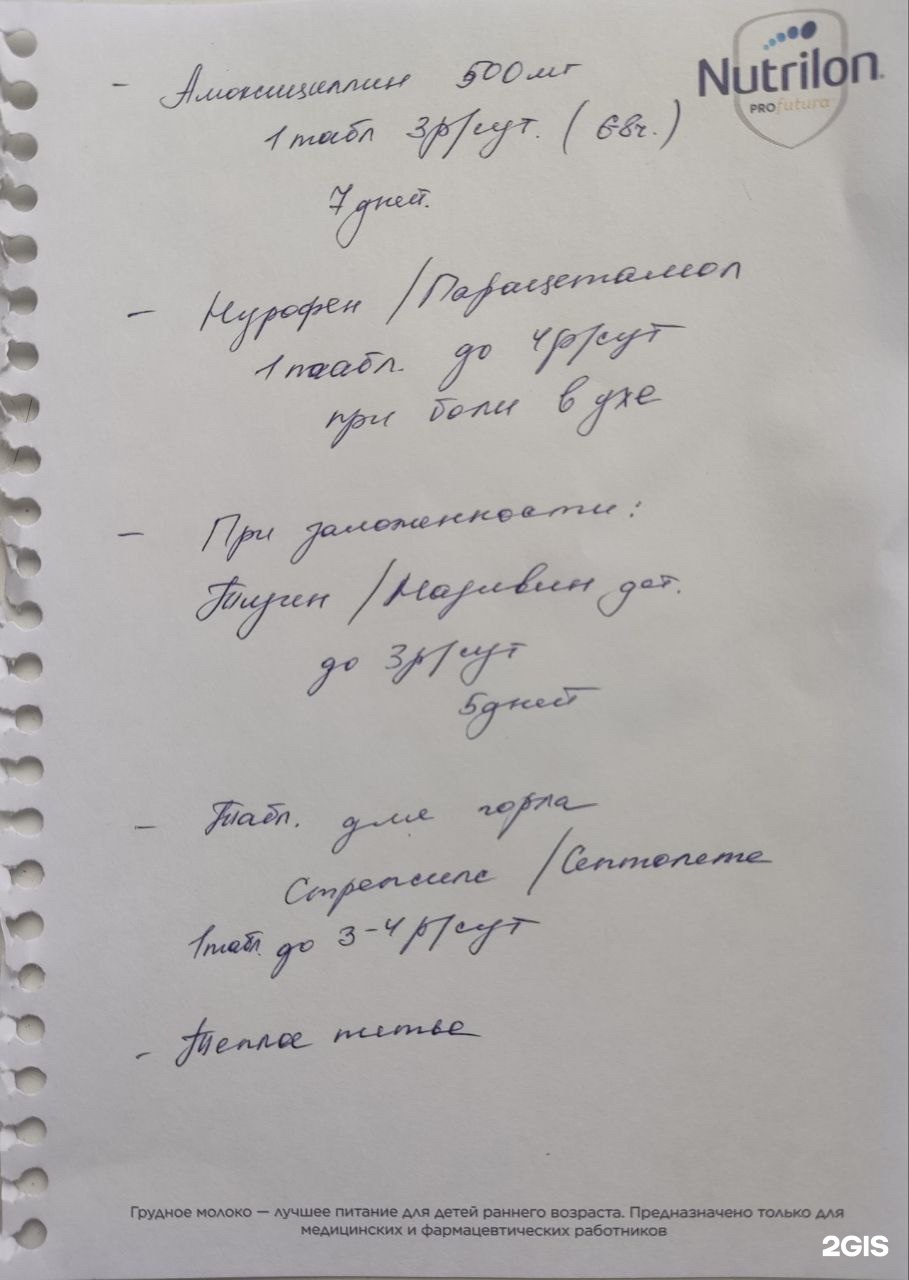 Nutrilon
PROfutura
- Амоксициллин 500мг
1 табл 3р/сут. (6-8ч.)
7 дней.
- Нурофен / Парацетамол
1 таабл. до 4р/сут
при боли в ухе
- При заложенности:
/ Називин дет.
до 3р/сут
5 дней
- Табл. для горла
Стрепсилс / Септолете
1 табл. до 3-4 р/сут
- Теплое питье
Грудное молоко — лучшее питание для детей раннего возраста. Предназначено только для
медицинских и фармацевтических работников
2GIS